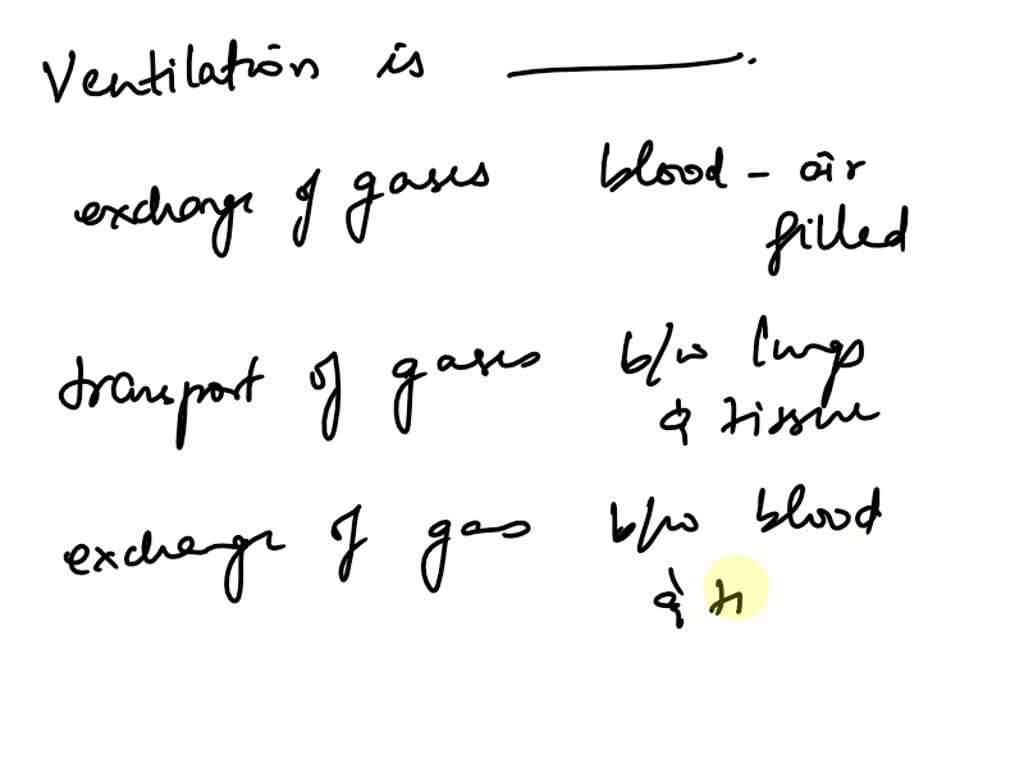 Ventilation is ______.
exchange of gases blood - air
filled
transport of gases b/w lungs
& tissue
exchange of gas b/w blood
& ti